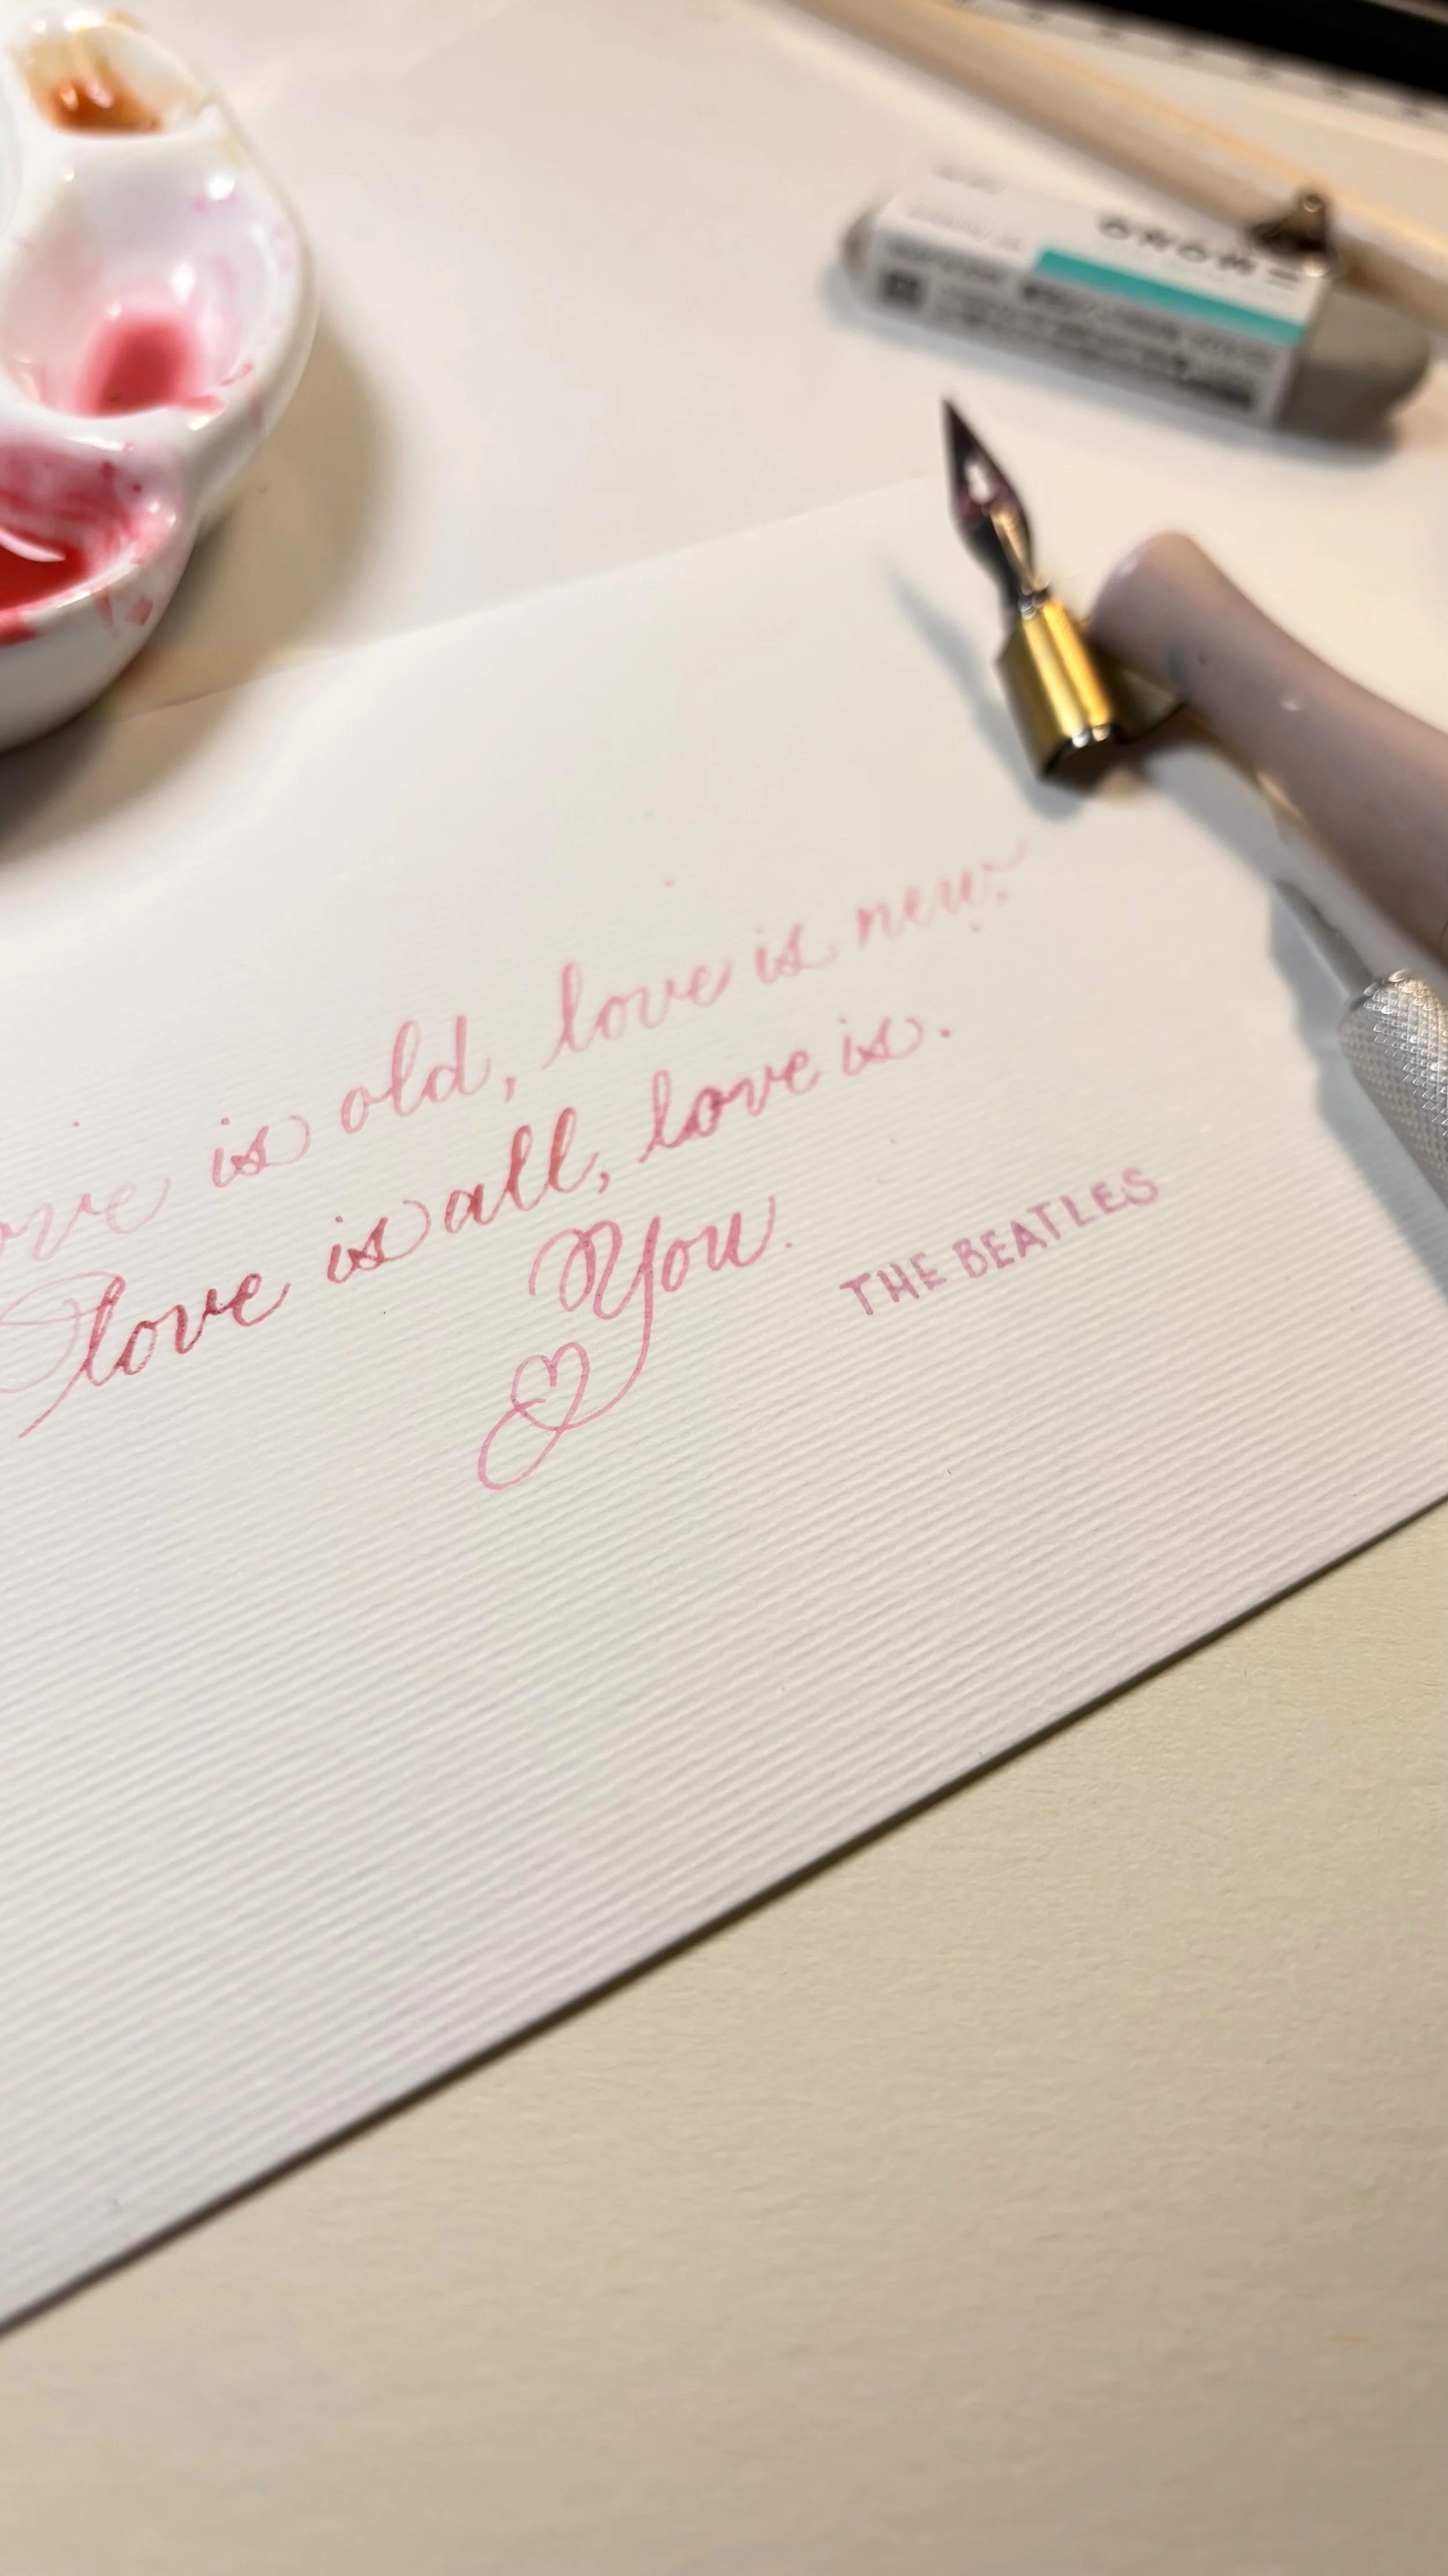 MONO
ove is old, love is new.
love is all, love is.
You.
THE BEATLES